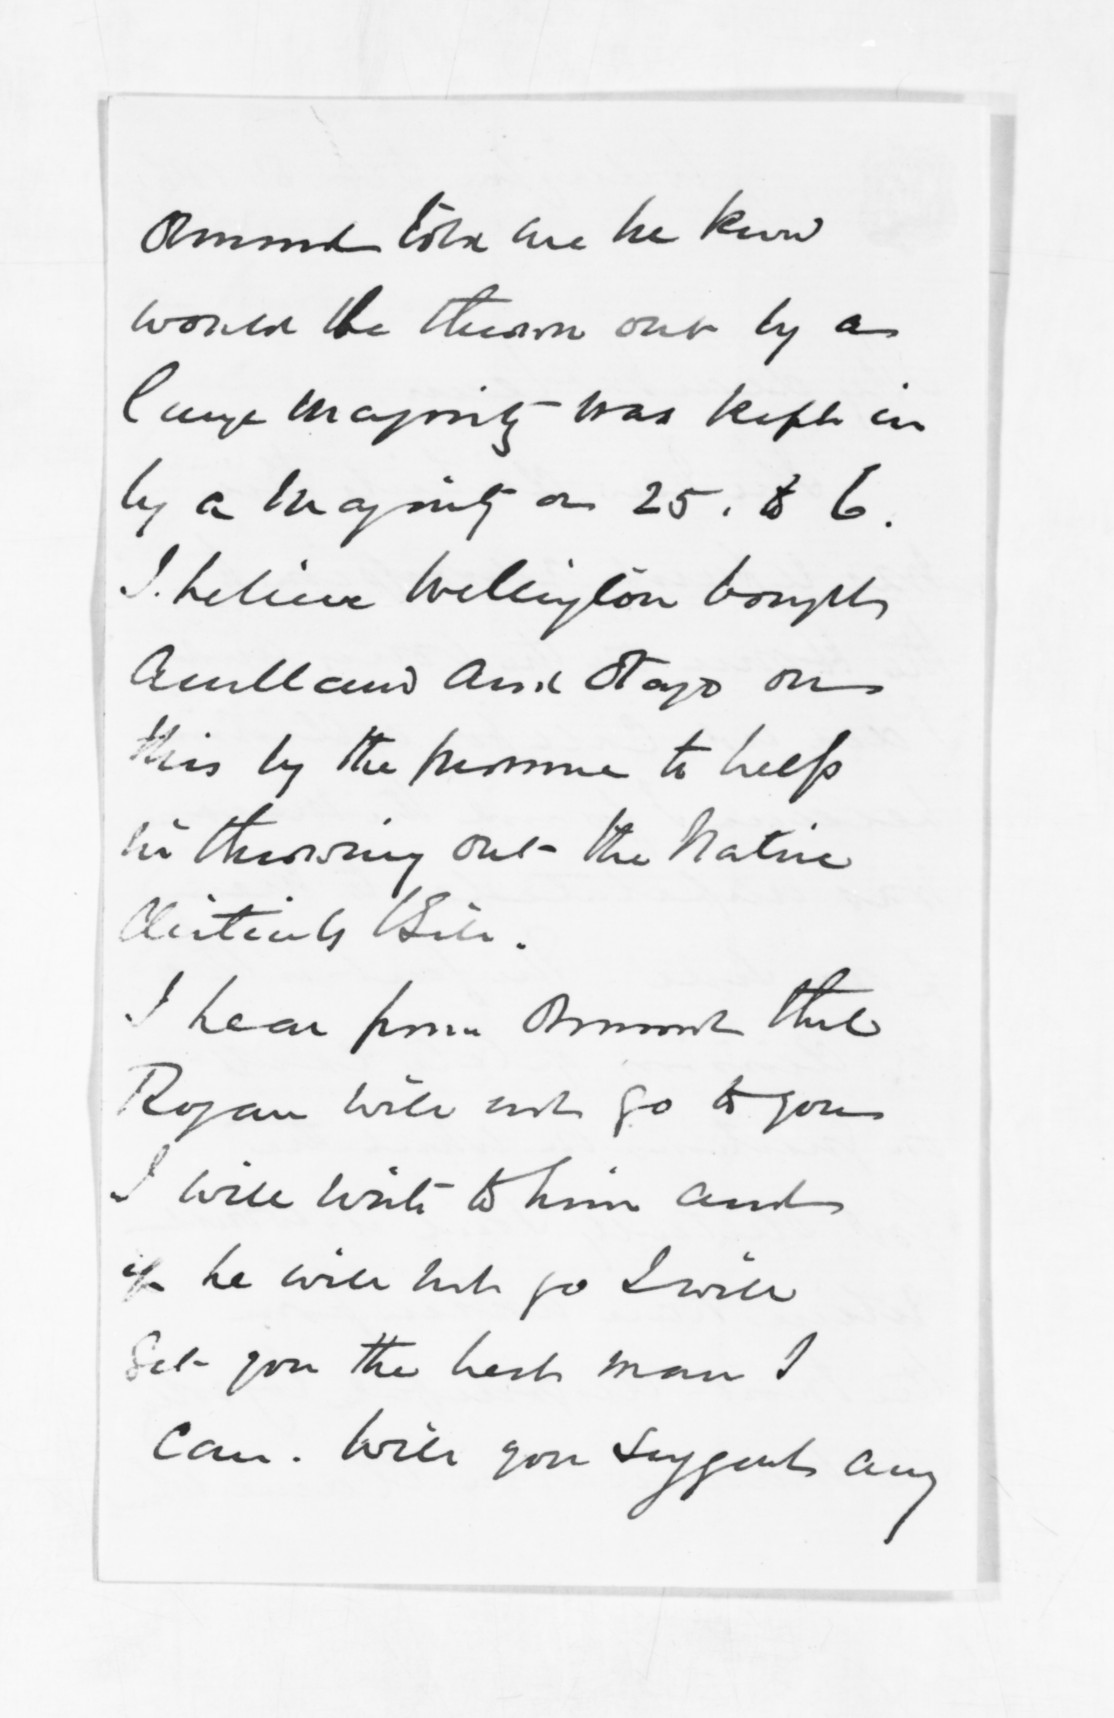 Ormond told me he knew
would be thrown out by a
large majority was kept in
by a majority on 25. to 6.
I believe Wellington bought
Auckland and Otago on
this by the promise to help
in throwing out the Native
districts Bill.
I hear from Ormond that
Rogan will not go to you
I will write to him and
if he will not go I will
get you the best man I
can. Will you suggest any